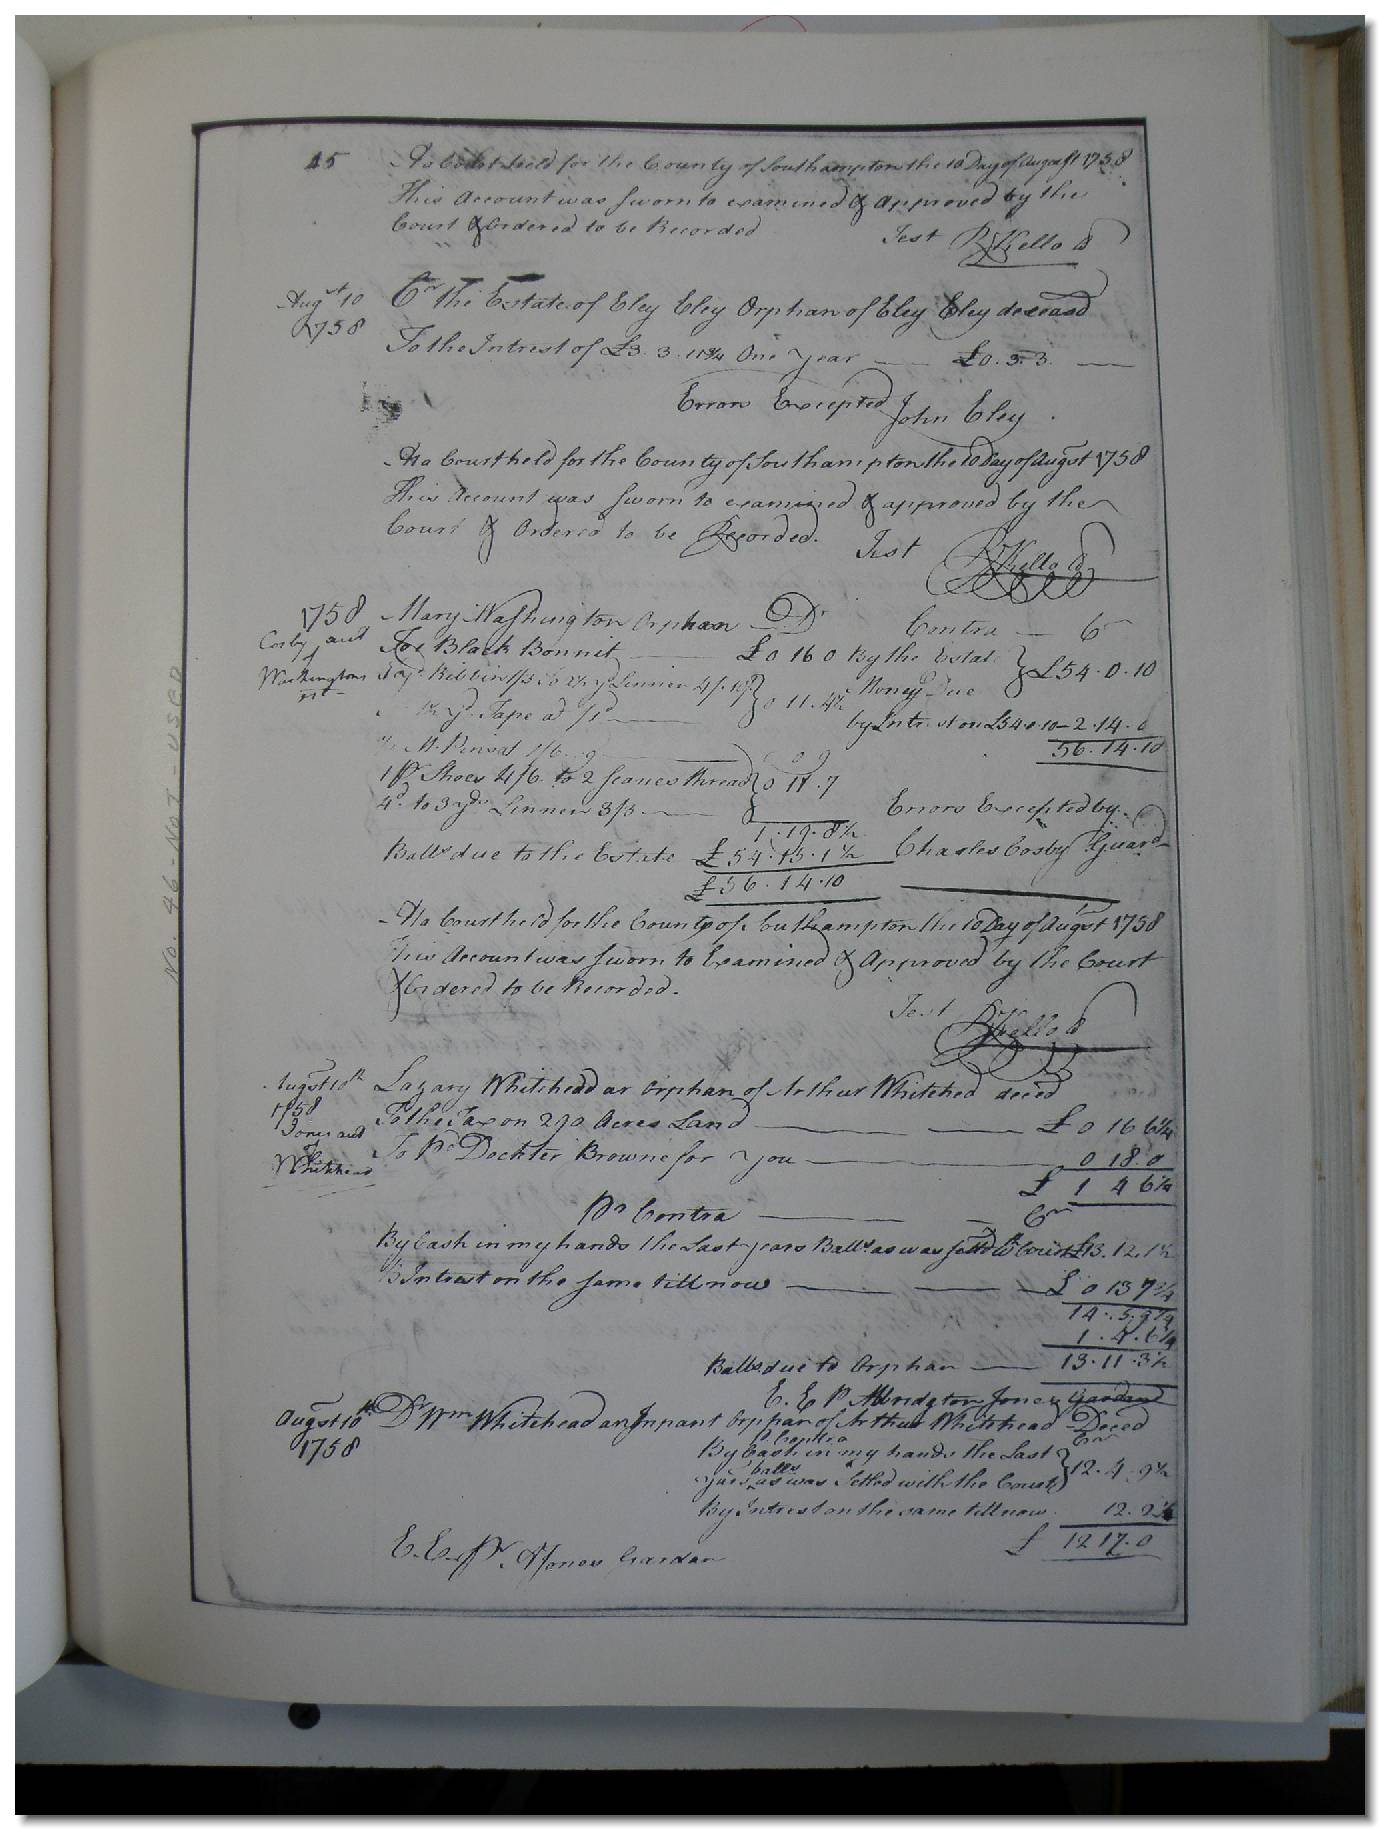 45
At a Court held for the County of Southampton the 10 Day of August 1758
This Account was sworn to examined & approved by the
Court & Ordered to be Recorded
Test R Kello C
Augst 10
1758
Cr the Estate of Eley Eley Orphan of Eley Eley deceasd
To the Intrest of £3. 3. 11¾ One year — £0. 3. 3. —
Errors Excepted John Eley.
At a Court held for the County of Southampton the 10 Day of Augst 1758
This Account was sworn to examined & approved by the
Court & Ordered to be Recorded.
Test R Kello C
1758
Cosby and
Washingtons
Mary Washington Orphan Dr Contra — Cr
To 1 Black Bonnit — £0 16 0 By the Estate
Ribbin Linnen } 0 11. 4½ Money Due } £54. 0. 10
yd Tape at — by Intrest on £54. 0. 10 — 2. 14. 0
56. 14. 10
1 pr Shoes 4/6. to 2 thread } 0 11. 7
4d. to 3 yds Linnen 3/3 — Errors Excepted by
1. 19. 8½
Balls due to the Estate £54. 15. 1½ Charles Cosby Guard
£56. 14. 10
At a Court held for the County of Southampton the 10 Day of Augst 1758
This Account was sworn to Examined & Approved by the Court
& Ordered to be Recorded.
Test R Kello C
Augst 10th
1758
Jones and
Whitehead
Lazary Whitehead an orphan of Arthur Whitehed deced
To the Tax on 290 Acres Land — £0 16 6¼
To Pd Dockter Browne for you — 0 18. 0
£ 1 4 6¼
Pr Contra — Cr
By Cash in my hands the Last years Balls as was settld Court £13. 12. 1½
By Intrest on the same till now — £0 13 7¾
14. 5. 9¼
1. 4. 6¼
Balls due to Orphan — 13. 11. 3½
E. E. P. Albridgton Jones Gardand
Augst 10th
1758
Dr Wm Whitehead an Inpant orppan of Arthur Whitehead Deced
P. Contra Cr
By Cash in my hands the Last
years balls as was Setled with the Court } 12. 4. 9½
By Intrest on the same till now. 12. 2½
£ 12 17. 0
E. E. Pr. A Jones Gardan
No. 46 - NOT - USED